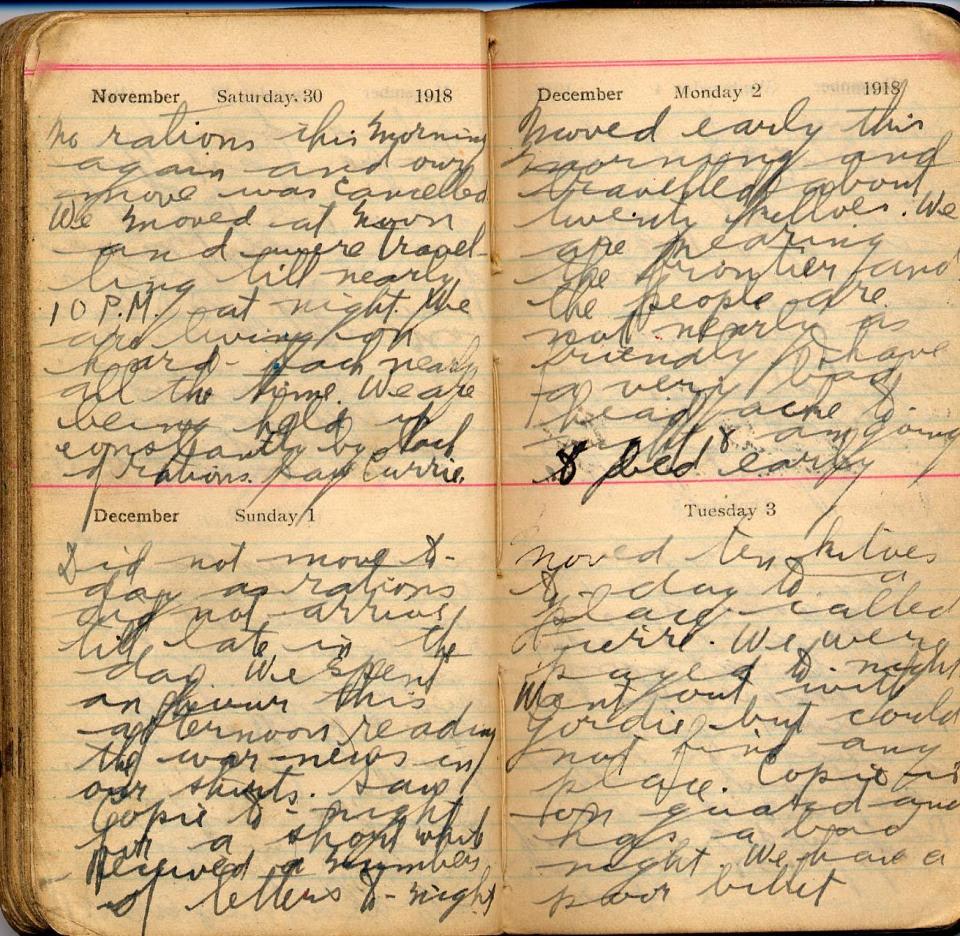 November Saturday. 30 1918
No rations this morning
again and our
move was cancelled
We moved at noon
and were travel-
ling till nearly
10 P.M. at night. We
are living on
hard-tack nearly
all the time. We are
being held up
constantly by lack
of rations. Saw Currie.
December Sunday 1
Did not move to-
day as rations
did not arrive
till late in the
day. We spent
an hour this
afternoon reading
the war-news in
our shirts. Saw
Copie to-night
for a short while
Received a number
of letters to-night
December Monday 2 1918
Moved early this
morning and
travelled about
twenty killoes. We
are nearing
the frontier and
the people are
not nearly as
friendly I have
a very bad
head ache to-
night & am going
to bed early
Tuesday 3
Moved ten kiloes
to-day to a
place called
Fierre. We were
payed to-night
Went out with
Gordie but could
not find any
place. Copie is
on guard and
has a bad
night. We have a
poor billet